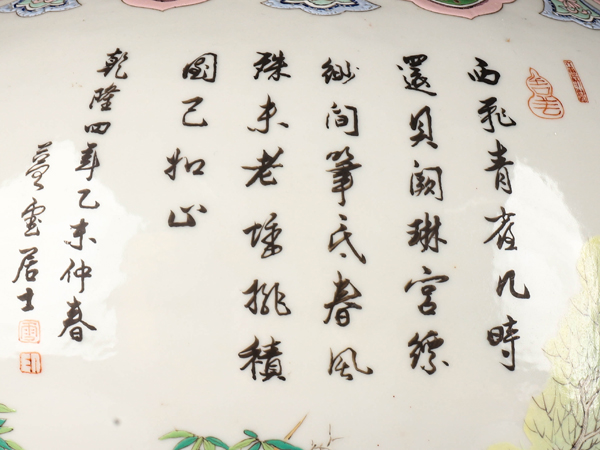 西飛青雀几時
還貝闕琳宮縹
緲間筆底春風
殊未老堆挑積
圖已如山
乾隆四年乙未仲春
雲居士